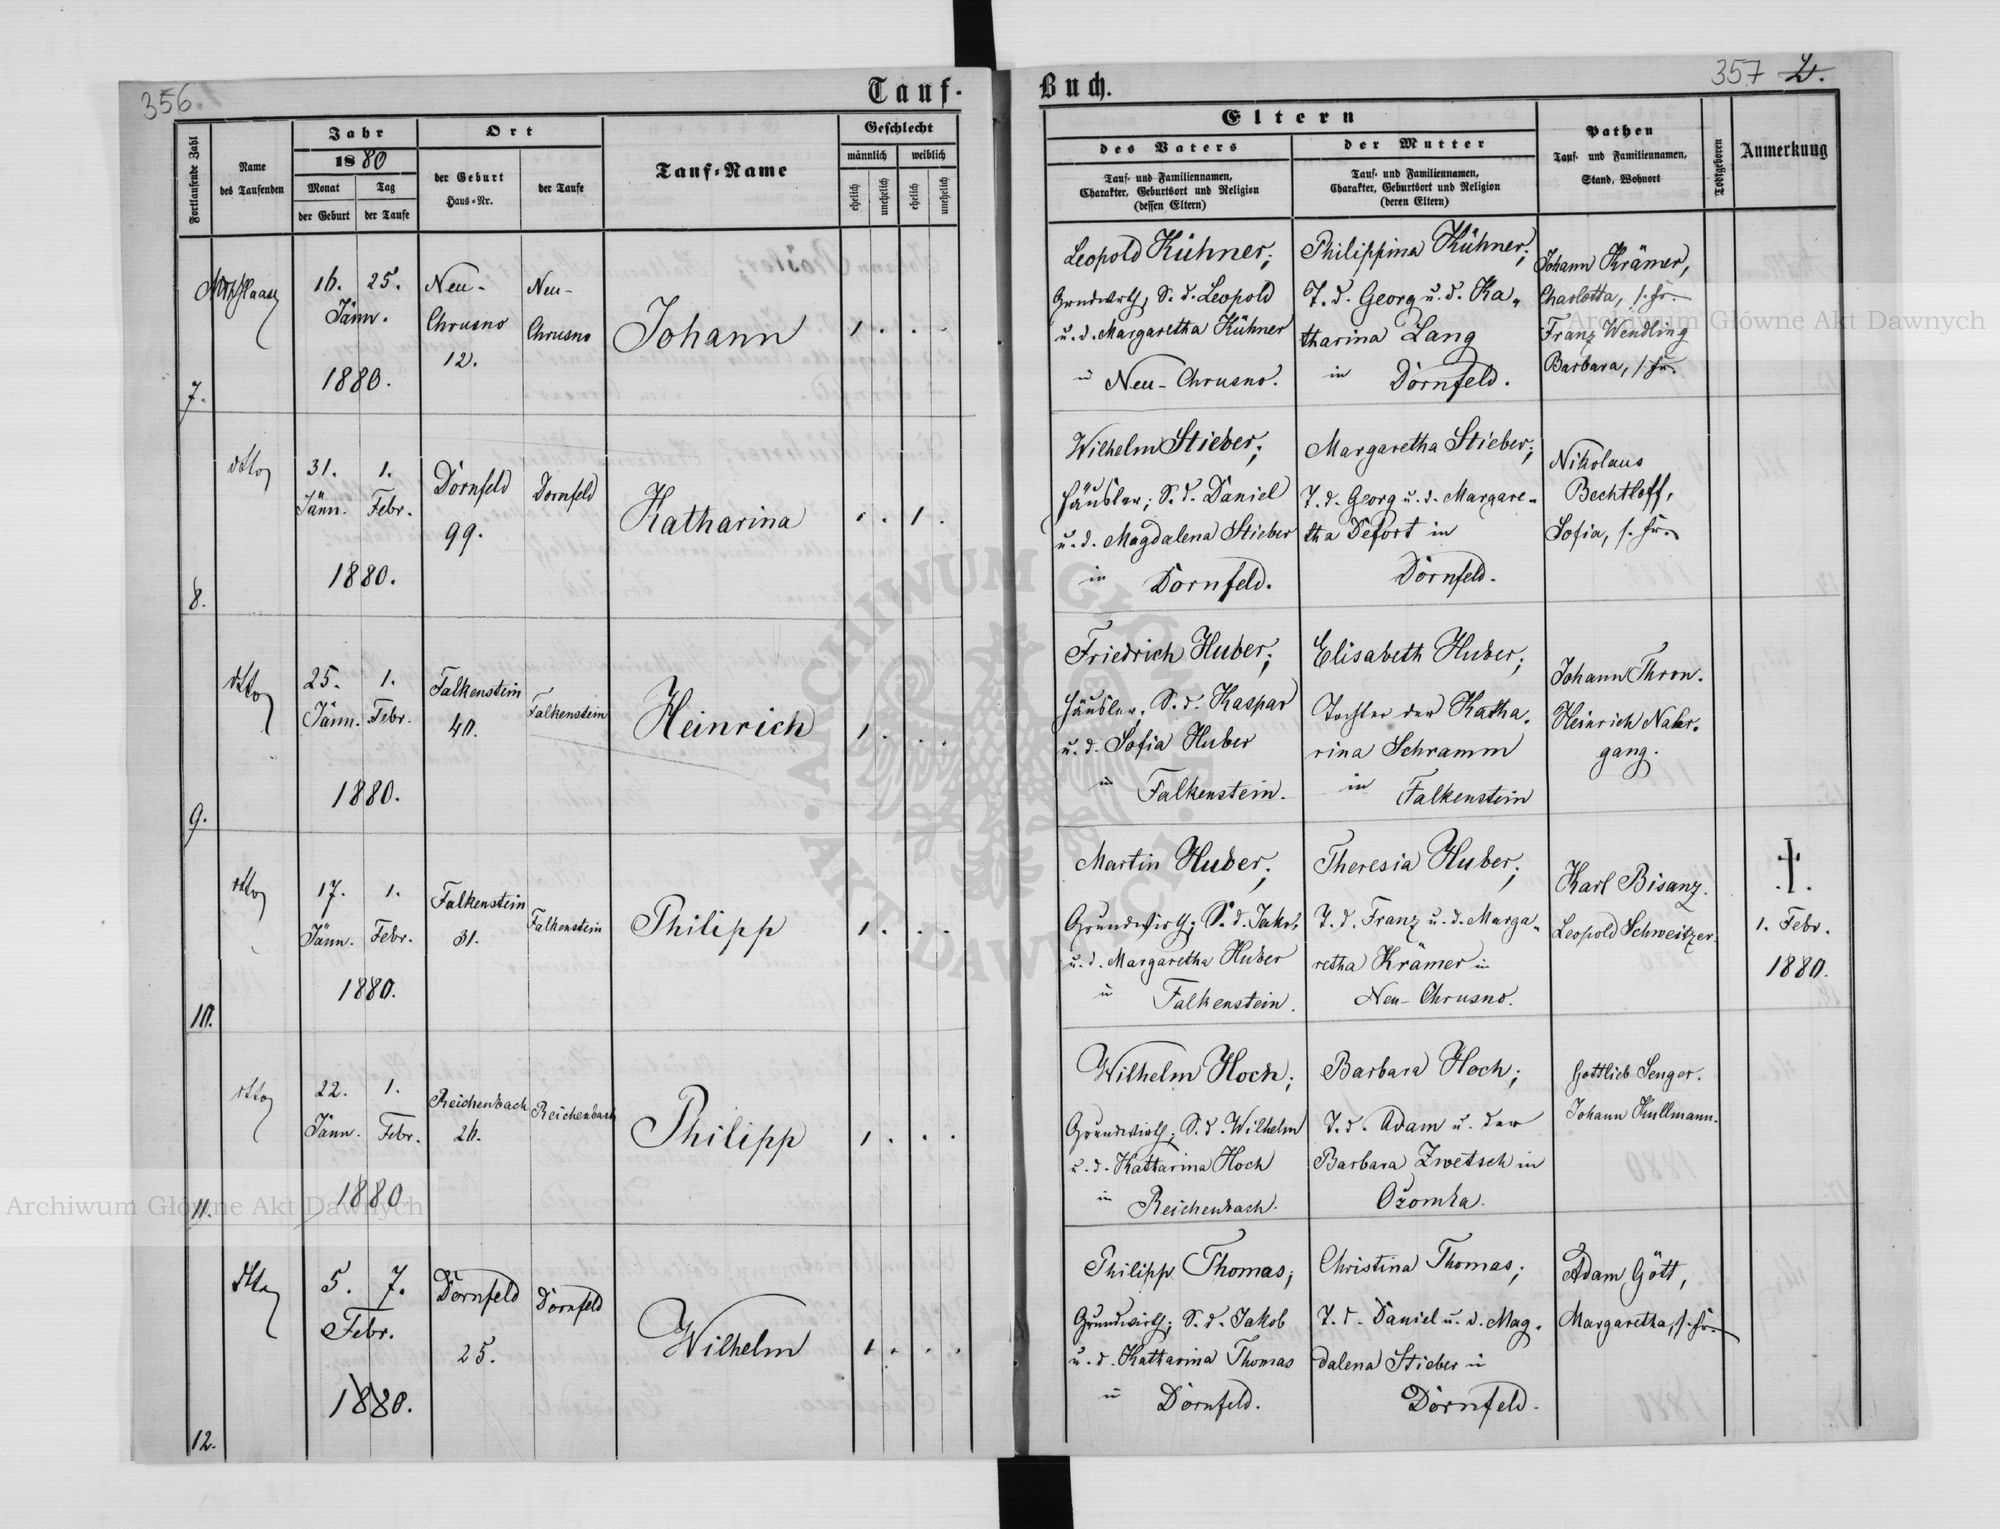 356.
Tauf-
Buch.
357
2.
Fortlaufende Zahl
Name
des Taufenden
Jahr
1880
Monat
Tag
der Geburt
der Taufe
Ort
der Geburt
Haus-Nr.
der Taufe
Tauf-Name
Geschlecht
männlich
weiblich
ehelich
unehelich
ehelich
unehelich
Eltern
des Vaters
Tauf- und Familiennamen,
Charakter, Geburtsort und Religion
(dessen Eltern)
der Mutter
Tauf- und Familiennamen,
Charakter, Geburtsort und Religion
(deren Eltern)
Pathen
Tauf- und Familiennamen,
Stand, Wohnort
Todtgeboren
Anmerkung
7.
16. 25.
Jänn.
1880.
Neu-
Chrusno
12.
Neu-
Chrusno
Johann
1 . . .
Leopold Kühner;
Grndwirth, S. d. Leopold
u. d. Margaretha Kühner
in Neu-Chrusno.
Philippina Kühner;
T. d. Georg u. d. Ka-
tharina Lang
in Dornfeld.
Johann Krämer,
Charlotta, s. Fr.
Franz Wendling
Barbara, s. Fr.
8.
dtto
31. 1.
Jänn. Febr.
1880.
Dornfeld
99.
Dornfeld
Katharina
. . 1 .
Wilhelm Stieber;
Häusler; S. d. Daniel
u. d. Magdalena Stieber
in Dornfeld.
Margaretha Stieber;
T. d. Georg u. d. Margare-
tha Defort in
Dornfeld.
Nikolaus
Bechtloff,
Sofia, s. Fr.
9.
dtto
25. 1.
Jänn. Febr.
1880.
Falkenstein
40.
Falkenstein
Heinrich
1 . . .
Friedrich Huber;
Häusler, S. d. Kaspar
u. d. Sofia Huber
in Falkenstein.
Elisabeth Huber;
Tochter der Katha-
rina Schramm
in Falkenstein
Johann Thron.
Heinrich Nahr-
gang.
10.
dtto
17. 1.
Jänn. Febr.
1880.
Falkenstein
31.
Falkenstein
Philipp
1 . . .
Martin Huber;
Grundwirth; S. d. Jakob
u. d. Margaretha Huber
in Falkenstein.
Theresia Huber;
T. d. Franz u. d. Marga-
retha Krämer in
Neu-Chrusno.
Karl Bisanz.
Leopold Schweitzer.
1. Febr.
1880.
11.
dtto
22. 1.
Jänn. Febr.
1880
Reichenbach
26.
Reichenbach
Philipp
1 . . .
Wilhelm Hoch;
Grundwirth; S. d. Wilhelm
u. d. Katharina Hoch
in Reichenbach.
Barbara Hoch;
T. d. Adam u. der
Barbara Zwetsch in
Ožomla.
Gottlieb Senger.
Johann Kullmann.
12.
dtto
5. 7.
Febr.
1880.
Dornfeld
25.
Dornfeld
Wilhelm
1 . . .
Philipp Thomas;
Grundwirth; S. d. Jakob
u. d. Katharina Thomas
in Dornfeld.
Christina Thomas;
T. d. Daniel u. d. Mag-
dalena Stieber in
Dornfeld.
Adam Gött,
Margaretha, s. Fr.
Archiwum Główne Akt Dawnych
Archiwum Główne Akt Dawnych
ARCHIWUM GŁÓWNE
AKT DAWNYCH